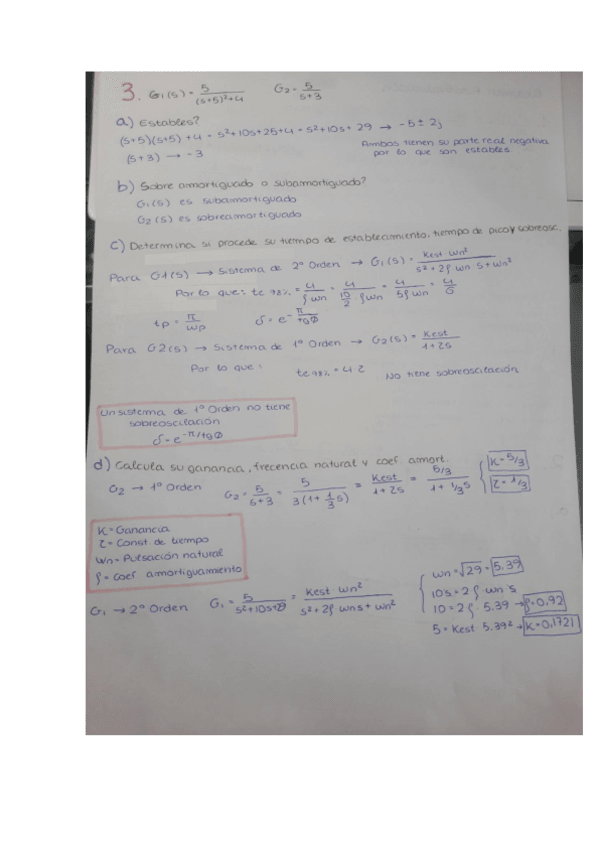 3. G1(s) = 5/((s+5)²+4)   G2 = 5/(s+3)
a) Estables?
(s+5)(s+5) + 4 = s²+10s+25+4 = s²+10s+29 → -5 ± 2j
(s+3) → -3
Ambos tienen su parte real negativa
por lo que son estables
b) Sobre amortiguado o subamortiguado?
G1(s) es subamortiguado
G2(s) es sobreamortiguado
c) Determina si procede su tiempo de establecimiento, tiempo de pico y sobreosc.
Para G1(s) → Sistema de 2º Orden → G1(s) = Kest wn²/(s²+2ρ wn s+wn²)
Por lo que: te 98% = 4/(ρ wn) = 4/(10/2 · ρwn) = 4/(5ρ wn) = 4/σ
tp = π/wp   δ = e^(-π/tgØ)
Para G2(s) → Sistema de 1º Orden → G2(s) = Kest/(1+Zs)
Por lo que: te 98% = 4Z   No tiene sobreoscilación
Un sistema de 1º Orden no tiene
sobreoscilación
δ = e^(-π/tgØ)
d) Calcula su ganancia, frecencia natural y coef. amort.
G2 → 1º Orden   G2 = 5/(s+3) = 5/(3(1+1/3 s)) = Kest/(1+Zs) = (5/3)/(1+1/3 s) { K = 5/3
Z = 1/3
K = Ganancia
Z = Const. de tiempo
Wn = Pulsación natural
ρ = Coef amortiguamiento
G1 → 2º Orden   G1 = 5/(s²+10s+29) = Kest wn²/(s²+2ρ wn s+wn²)
wn = √29 = 5.39
10s = 2ρ wn s
10 = 2ρ · 5.39 → ρ = 0,92
5 = Kest · 5.39² → K = 0,1721